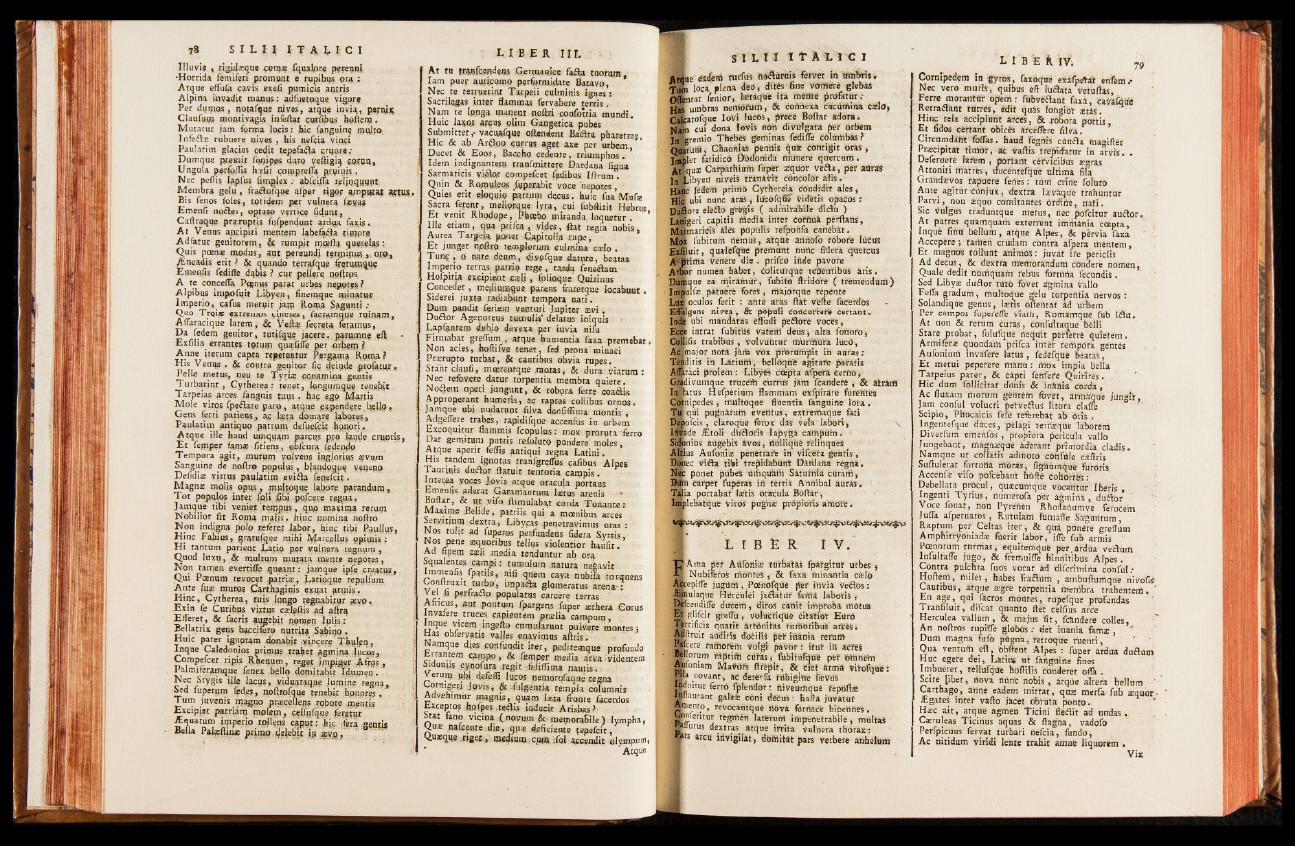 78 SILII ITALICI
Illuvie, rigidæque comæ ſqualore perenni
Horrida ſemiferi promunt e rupibus ora:
Atque effuſa cavis exeſi pumicis antris
Alpina invadit manus: adſuetoque vigore
Per dumos, notaſque nives, atque invia, pernix
Clauſum montivagis infeſtat curſibus hoſtem.
Mutatur jam forma locis: hic ſanguine multo
Infectæ rubuere nives, his neſcia vinci
Paulatim glacies cedit tepefacta cruore:
Dumque premit ſonipes duro veſtigia cornu,
Ungula perfoſſis hæſit compreſſa pruinis.
Nec peſtis lapſus ſimplex: abſciſſa relinquunt
Membra gelu, fractoſque aſper rigor amputat artus.
Bis ſenos ſoles, totidem per vulnera ſævas
Emenſi noctes, optato vertice ſidunt,
Caſtraque præruptis ſuſpendunt ardua ſaxis.
At Venus ancipiti mentem labefacta timore
Adfatur genitorem, & rumpit mœſta querelas:
Quis pœnæ modus, aut pereundi terminus, oro,
Æneadis erit? & quando terraſque fretumque
Emenſis ſediſſe dabis? cur pellere noſtros
A te conceſſa Pœnus parat urbes nepotes?
Alpibus impoſuit Libyen, finemque minatur
Imperio, caſus metuit jam Roma Sagunti:
Quo Trojæ extremos cineres, ſacramque ruinam,
Aſſaracique larem, & Veſtæ ſecreta feramus,
Da ſedem genitor, tutiſque jacere. parumne eſt
Exſilia errantes totum quæſiſſe per orbem?
Anne iterum capta repetentur Pergama Roma?
His Venus. & contra genitor ſic deinde profatur.
Pelle metus, neu te Tyriæ conamina gentis
Turbarint, Cytherea: tenet, longumque tenebit
Tarpeias arces ſanguis tuus. hac ego Martis
Mole viros ſpectare paro, atque expendere bello.
Gens ferri patiens, ac læta domare labores,
Paulatim antiquo patrum deſueſcit honori.
Atque ille haud umquam parcus pro laude cruoris,
Et ſemper famæ ſitiens, obſcura ſedendo
Tempora agit, murum volvens inglorius ævum
Sanguine de noſtro populus, blandoque veneno
Deſidiæ virtus paulatim evicta ſeneſcit.
Magnæ molis opus, multoque labore parandum,
Tot populos inter ſoli ſibi poſcere regna.
Jamque tibi veniet tempus, quo maxima rerum
Nobilior ſit Roma malis. hinc nomina noſtro
Non indigna polo referet labor, hinc tibi Paullus,
Hinc Fabius, gratuſque mihi Marcellus opimis:
Hi tantum parient Latio per vulnera regnum,
Quod luxu, & multum mutata mente nepotes,
Non tamen evertiſſe queant: jamque ipſe creatus,
Qui Pœnum revocet patriæ, Latioque repulſum
Ante ſuæ muros Carthaginis exuat armis.
Hinc, Cytherea, tuis longo regnabitur ævo.
Exin ſe Curibus virtus cæleſtis ad aſtra
Efferet, & ſacris augebit nomen Iulis:
Bellatrix gens baccifero nutrita Sabino.
Huic pater ignotam donabit vincere Thulen,
Inque Caledonios primus trahet agmina lucos,
Compeſcet ripis Rhenum, reget impiger Afros,
Palmiferamque ſenex bello domitabit Idumen.
Nec Stygis ille lacus, viduataque lumine regna,
Sed ſuperum ſedes, noſtroſque tenebit honores.
Tum juvenis magno præcellens robore mentis
Excipiet patriam molem, celſuſque feretur
Æquatum imperio tollens caput: hic fera gentis
Bella Palæſtinæ primo delebit in ævo.
LIBER III.
At tu tranſcendens Germanice facta tuorum,
Iam puer auricomo performidate Batavo,
Nec te terruerint Tarpeii culminis ignes:
Sacrilegas inter flammas ſervabere terris.
Nam te longa manent noſtri conſortia mundi.
Huic laxos arcus olim Gangetica pubes
Submittet, vacuaſque oſtendent Bactra pharetras.
Hic & ab Arctoo currus aget axe per urbem,
Ducet & Eoos, Baccho cedente, triumphos.
Idem indignantem tranſmittere Dardana ſigna
Sarmaticis victor compeſcet ſedibus Iſtrum.
Quin & Romuleos ſuperabit voce nepotes,
Quies erit eloquio partum decus. huic ſua Muſæ
Sacra ferent, meliorque lyra, cui ſubſtitit Hebrus,
Et venit Rhodope, Phœbo miranda loquetur.
Ille etiam, qua priſca, vides, ſtat regia nobis,
Aurea Tarpeia ponet Capitolia rupe,
Et junget noſtro templorum culmina cælo.
Tunc, o nate deum, divoſque dature, beatas
Imperio terras patrio rege, tarda ſenectam
Hoſpitia excipient cæli, ſolioque Quirinus
Concedet, mediumque parens fraterque locabunt.
Siderei juxta radiabunt tempora nati.
Dum pandit ſeriem venturi Jupiter ævi,
Ductor Agenoreus tumulis delatus iniquis
Lapſantem dubio devexa per invia niſu
Firmabat greſſum, atque humentia ſaxa premebat.
Non acies, hoſtiſve tenet, ſed prona minaci
Prærupto turbat, & cautibus obvia rupes.
Stant clauſi, mœrentque moras, & dura viarum:
Nec refovere datur torpentia membra quiete.
Noctem operi jungunt, & robora ferre coactis
Approperant humeris, ac raptas collibus ornos.
Jamque ubi nudarunt ſilva denſiſſima montis,
Adgeſſere trabes, rapidiſque accenſus in orbem
Excoquitur flammis ſcopulus: mox proruta ferro
Dat gemitum putris reſoluto pondere moles,
Atque aperit feſſis antiqui regna Latini.
His tandem ignotas tranſgreſſus caſibus Alpes
Taurinis ductor ſtatuit tentoria campis.
Interea voces Jovis atque oracula portans
Emenſis aderat Garamantum lætus arenis
Boſtar, & ut viſo ſtimulabat corda Tonante:
Maxime Belide, patriis qui a mœnibus arces
Servitium dextra, Libycas penetravimus oras:
Nos tulit ad ſuperos perfundens ſidera Syrtis,
Nos pene æquoribus tellus violentior hauſit.
Ad finem cæli media tenduntur ab ora
Squalentes campi: tumulum natura negavit
Immenſis ſpatiis, niſi quem cava nubila torquens
Conſtruxit turbo, impacta glomeratus arena:
Vel ſi perfracto populatus carcere terras
Africus, aut pontum ſpargens ſuper æthera Corus
Invaſere truces capientem prælia campum,
Inque vicem ingeſto cumularunt pulvere montes;
Has obſervatis valles enavimus aſtris.
Namque dies confundit iter, peditemque profundo
Errantem campo, & ſemper media arva videntem
Sidoniis cynoſura regit fidiſſima nautis.
Verum ubi defeſſi lucos nemoroſaque regna
Cornigeri Jovis, & fulgentia templa columnis
Advehimur magnis, quam læta fronte ſacerdos
Exceptos hoſpes tectis inducit Arisbas?
Stat fano vicina (novum & memorabile) lympha,
Quæ naſcente die, quæ deficiente tepeſcit,
Quæque riget, medium cum ſol accendit olympum,
Atque
SILII ITALICI
Atque eadem rurſus nocturnis fervet in umbris.
Tum loca plena deo, dites ſine vomere glebas
Oſtentat ſenior, lætaque ita mente profatur:
Has umbras nemorum, & connexa cacumina cælo,
Calcatoſque Jovi lucos, prece Boſtar adora.
Nam cui dona Jovis non divulgata per orbem
In gremio Thebes geminas ſediſſe columbas?
Quarum, Chaonias pennis quæ contigit oras,
Implet fatidico Dodonida munere quercum.
At quæ Carpathium ſuper æquor vecta, per auras
In Libyen niveis tranavit concolor alis.
Hanc ſedem primo Cythereia condidit ales,
Hic ubi nunc aras, lucoſque videtis opacos:
Ductore electo gregis (admirabile dictu)
Lanigeri capitis media inter cornua perſtans,
Marmaricis ales populis reſponſa canebat.
Mox ſubitum nemus, atque annoſo robore lucus
Exſiluit, qualeſque premunt nunc ſidera quercus
A prima venere die. priſco inde pavore
Arbor numen habet, coliturque tepentibus aris.
Dumque ea miramur, ſubito ſtridore (tremendum)
Impulſæ patuere fores, majorque repente
Lux oculos ferit: ante aras ſtat veſte ſacerdos
Effulgens nivea, & populi concurrere certant.
Inde ubi mandatas effudi pectore voces,
Ecce intrat ſubitus vatem deus, alta ſonoro,
Colliſis trabibus, volvuntur murmura luco,
Ac major nota jam vox prorumpit in auras:
Tenditis in Latium, belloque agitare paratis
Aſſaraci prolem: Libyes cœpta aſpera cerno,
Gradivumque trucem currus jam ſcandere, & atram
In latus Heſperium flammam exſpirare furentes
Cornipedes, multoque fluentia ſanguine lora.
Tu qui pugnarum eventus, extremaque fati
Depoſcis, claroque ferox das vela labori,
Invade Ætoli ductoris Iapyga campum.
Sidonios augebis avos, nullique relinques
Altius Auſoniæ penetrare in viſcera gentis,
Donec victa tibi trepidabunt Dardana regna.
Nec ponet pubes umquam Saturnia curam,
Dum carpet ſuperas in terris Annibal auras.
Talia portabat lætis oracula Boſtar,
Implebatque viros pugnæ propioris amore.
LIBER IV.
FAma per Auſoniæ turbatas ſpargitur urbes;
Nubiferos montes, & ſaxa minantia cælo
Accepiſſe jugum, Pœnoſque per invia vectos:
Æmulaque Herculei jactatur fama laboris;
Deſcendiſſe ducem, diros canit improba motus
Et gliſcit greſſu, volucrique citatior Euro
Terrificis quatit attonitas rumoribus arces.
Adſtruit auditis docilis per inania rerum
Paſcere rumorem vulgi pavor: itur in acres
Bellorum raptim curas, ſubituſque per omnem
Auſoniam Mavors ſtrepit, & ciet arma viroſque:
Pila novant, ac deterſa rubigine ſævus
Induitur ferro ſplendor: niveumque repoſtæ
Inſtaurant galeæ coni decus: haſta juvatur
Amento, revocantque nova fornace bipennes.
Conſeritur tegmen laterum impenetrabile, multas
Paſſurus dextras atque irrita vulnera thorax:
Pars arcu invigilat, domitat pars verbere anhelum
LIBER IV. 79
Cornipedem in gyros, ſaxoque exaſperat enſem.
Nec vero muris, quibus eſt luctata vetuſtas,
Ferre morantur opem: ſubvectant ſaxa, cavaſque
Retractant turres, edit quas longior ætas.
Hinc tela accipiunt arces, & robora portis,
Et fidos certant obices arceſſere ſilva.
Circumdant foſſas. haud ſegnis cuncta magiſter
Præcipitat timor, ac vaſtis trepidatur in arvis.
Deſeruere larem, portant cervicibus ægras
Attoniti matres, ducenteſque ultima fila
Grandævos rapuere ſenes: tum crine ſoluto
Ante agitur conjux, dextra lævaque trahuntur
Parvi, non æquo comitantes ordine, nati.
Sic vulgus traduntque metus, nec poſcitur auctor.
At patres quamquam exterrent immania cœpta,
Inque ſinu bellum, atque Alpes, & pervia ſaxa
Accepere; tamen crudam contra aſpera mentem,
Et magnos tollunt animos: juvat ire periclis
Ad decus, & dextra memorandum condere nomen,
Quale dedit numquam rebus fortuna ſecundis.
Sed Libyæ ductor tuto fovet agmina vallo
Feſſa gradum, multoque gelu torpentia nervos:
Solandique genus, lætis oſtentat ad urbem
Per campos ſupereſſe viam, Romamque ſub ictu.
At non & rerum curas, conſultaque belli
Stare probat, ſoluſque nequit perferre quietem.
Armiferæ quondam priſca inter tempora gentes
Auſonium invaſere latus, ſedeſque beatas,
Et metui peperere manu: mox impia bella
Tarpeius pater, & capti ſenſere Quirites.
Hic dum ſollicitat donis & inania corda,
Ac fluxam morum gentem fovet, armaque jungit,
Jam conſul volucri pervectus litora claſſe
Scipio, Phocaicis ſeſe referebat ab oris.
Ingenteſque duces, pelagi terræque laborem
Diverſum emenſos, propiora pericula vallo
Jungebant, magnæque aderant primordia cladis.
Namque ut collatis admoto conſule caſtris
Suſtulerat fortuna moras, ſignumque furoris
Accenſæ viſo poſcebant hoſte cohortes:
Debellata procul, quæcumque vocantur Iberis,
Ingenti Tyrius, numeroſa per agmina, ductor
Voce ſonat, non Pyrenen Rhodanumve ferocem
Juſſa aſpernatos, Rutulam fumaſſe Saguntum,
Raptum per Celtas iter, & qua ponere greſſum
Amphitryoniadæ fuerit labor, iſſe ſub armis
Pœnorum turmas, equitemque per ardua vectum
Inſultaſſe jugo, & fremuiſſe hinnitibus Alpes.
Contra pulchra ſuos vocat ad diſcrimina conſul:
Hoſtem, miles, habes fractum, ambuſtumque nivoſis
Cautibus, atque ægre torpentia membra trahentem.
En age, qui ſacros montes, rupeſque profundas
Tranſiluit, diſcat quanto ſtet celſius arce
Herculea vallum, & majus ſit, ſcandere colles,
An noſtros rupiſſe globos: det inania famæ,
Dum magna fuſo pugna, retroque ruenti,
Qua ventum eſt, obſtent Alpes: ſuper ardua ductum
Huc egere dei, Latios ut ſanguine fines
Imbueret, telluſque hoſtilis conderet oſſa.
Scire libet, nova nunc nobis, atque altera bellum
Carthago, anne eadem mittat, quæ merſa ſub æquor
Ægates inter vaſto jacet obruta ponto.
Hæc ait, atque agmen Ticini flectit ad undas.
Cæruleas Ticinus aquas & ſtagna, vadoſo
Perſpicuus ſervat turbari neſcia, fundo,
Ac nitidum viridi lente trahit amne liquorem.
Vix